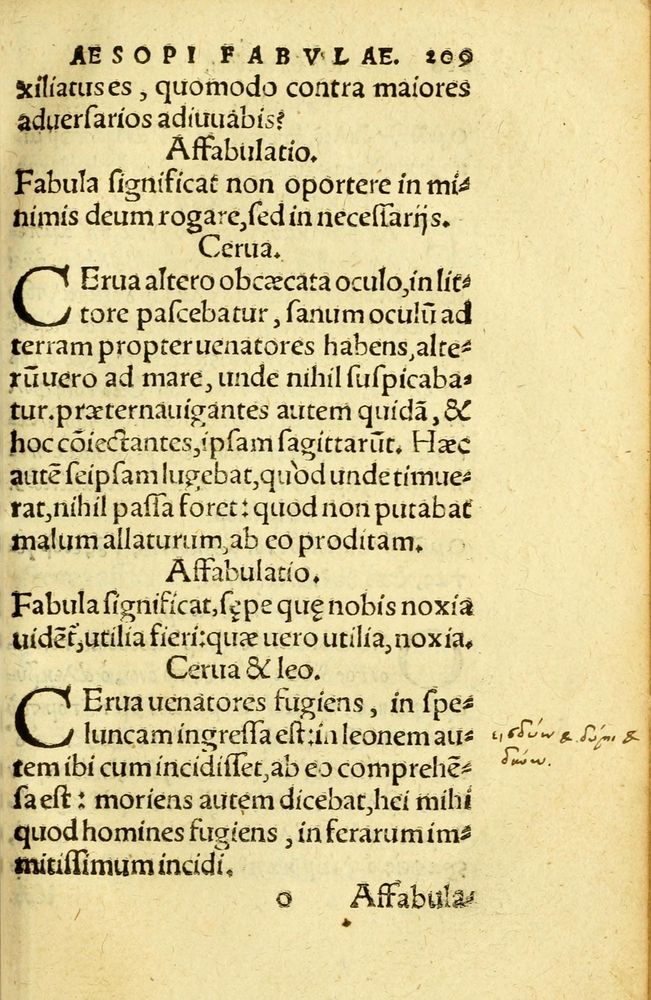 AESOPI FABVLAE. 209
xiliatus es, quomodo contra maiores
aduersarios adiuuabis?
Affabulatio.
Fabula significat non oportere in mi-
nimis deum rogare, sed in necessarijs.
Cerua.
CErua altero obcæcata oculo, in lit-
tore pascebatur, sanum oculū ad
terram propter uenatores habens, alte-
rū uero ad mare, unde nihil suspicaba-
tur. præternauigantes autem quidā, &
hoc cōiectantes, ipsam sagittarūt. Hæc
autē seipsam lugebat, quòd unde timue-
rat, nihil passa foret: quod non putabat
malum allaturum, ab eo proditam.
Affabulatio.
Fabula significat, sępe quę nobis noxia
uidēt, utilia fieri: quæ uero utilia, noxia.
Cerua & leo.
CErua uenatores fugiens, in spe-
luncam ingressa est: in leonem au-
tem ibi cum incidisset, ab eo comprehē-
sa est: moriens autem dicebat, hei mihi
quod homines fugiens, in ferarum im-
mitissimum incidi.
o Affabula-